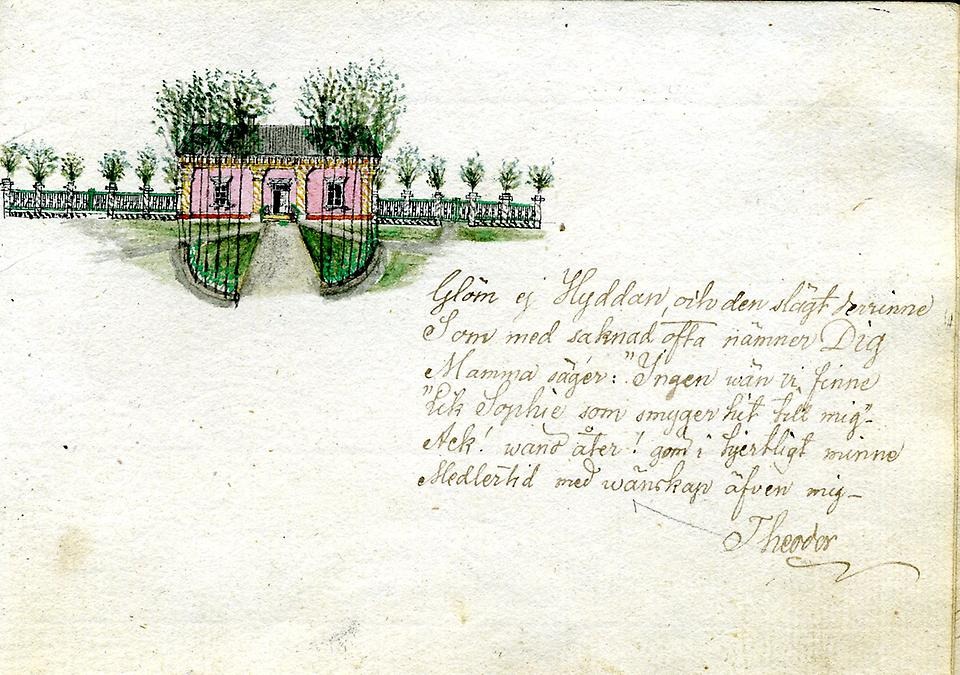 Glöm ej Hyddan, och den slägt derinne
Som med saknad ofta nämner Dig
Mamma säger: "Ingen wän vi finne
"Lik Sophie som smyger hit till mig"-
Ack! wänd åter! göm i hjertligt minne
Medlertid med wänskap äfven mig-
Theodor